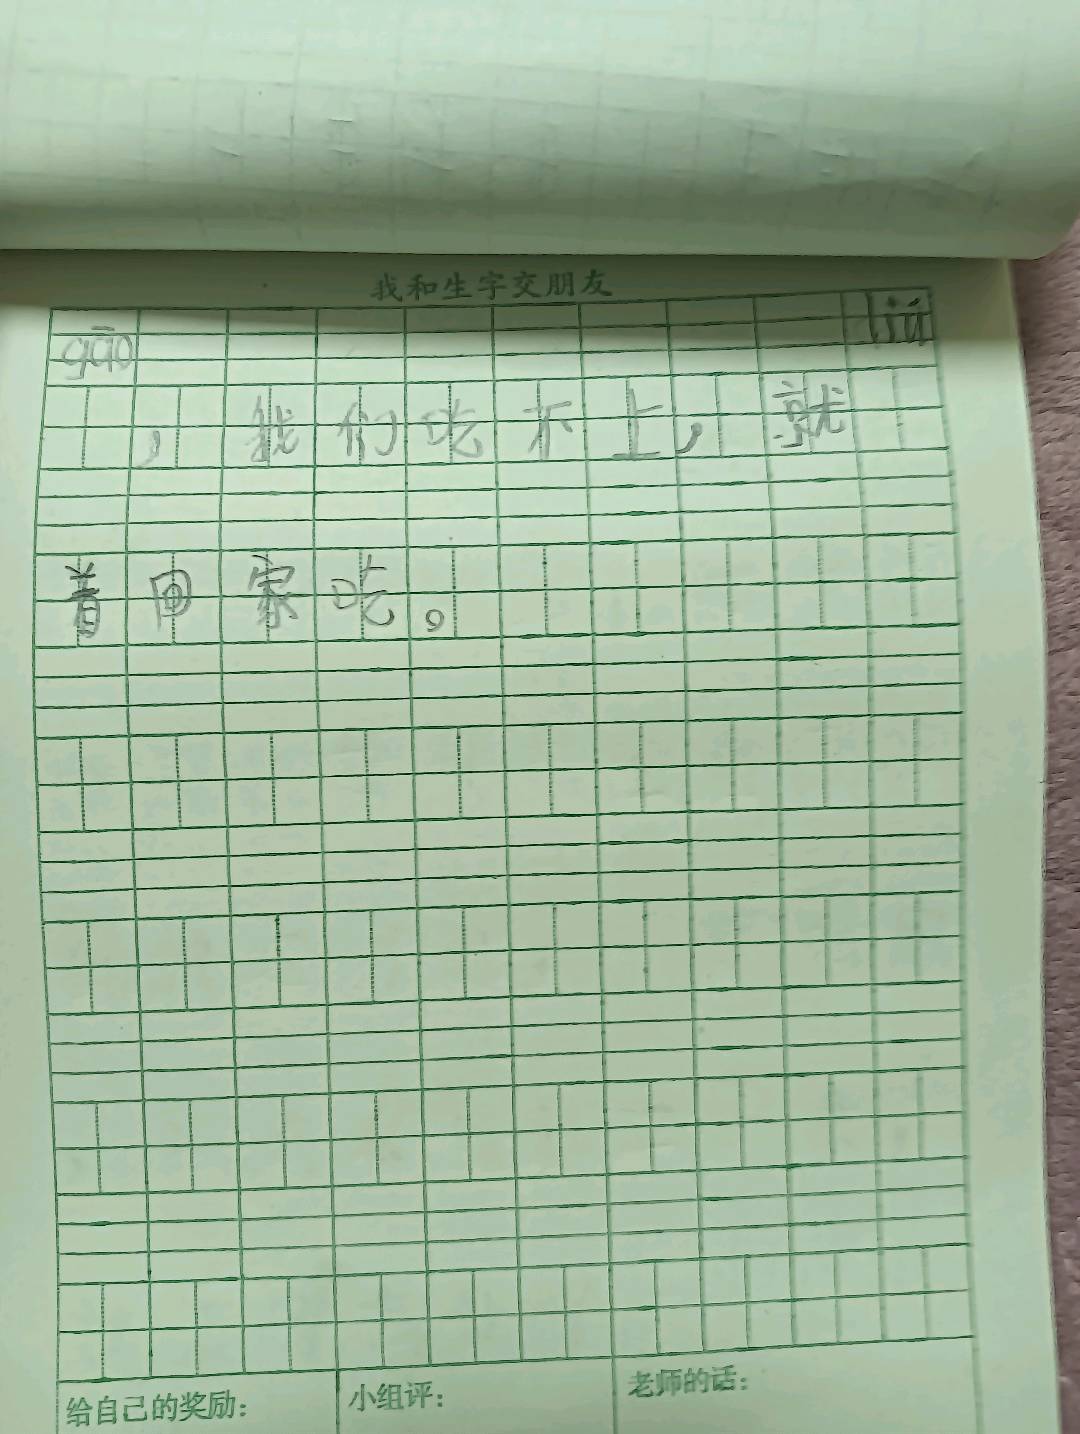 我和生字交朋友
gāo jū
，我们吃不上，就
着回家吃。
给自己的奖励： 小组评： 老师的话：